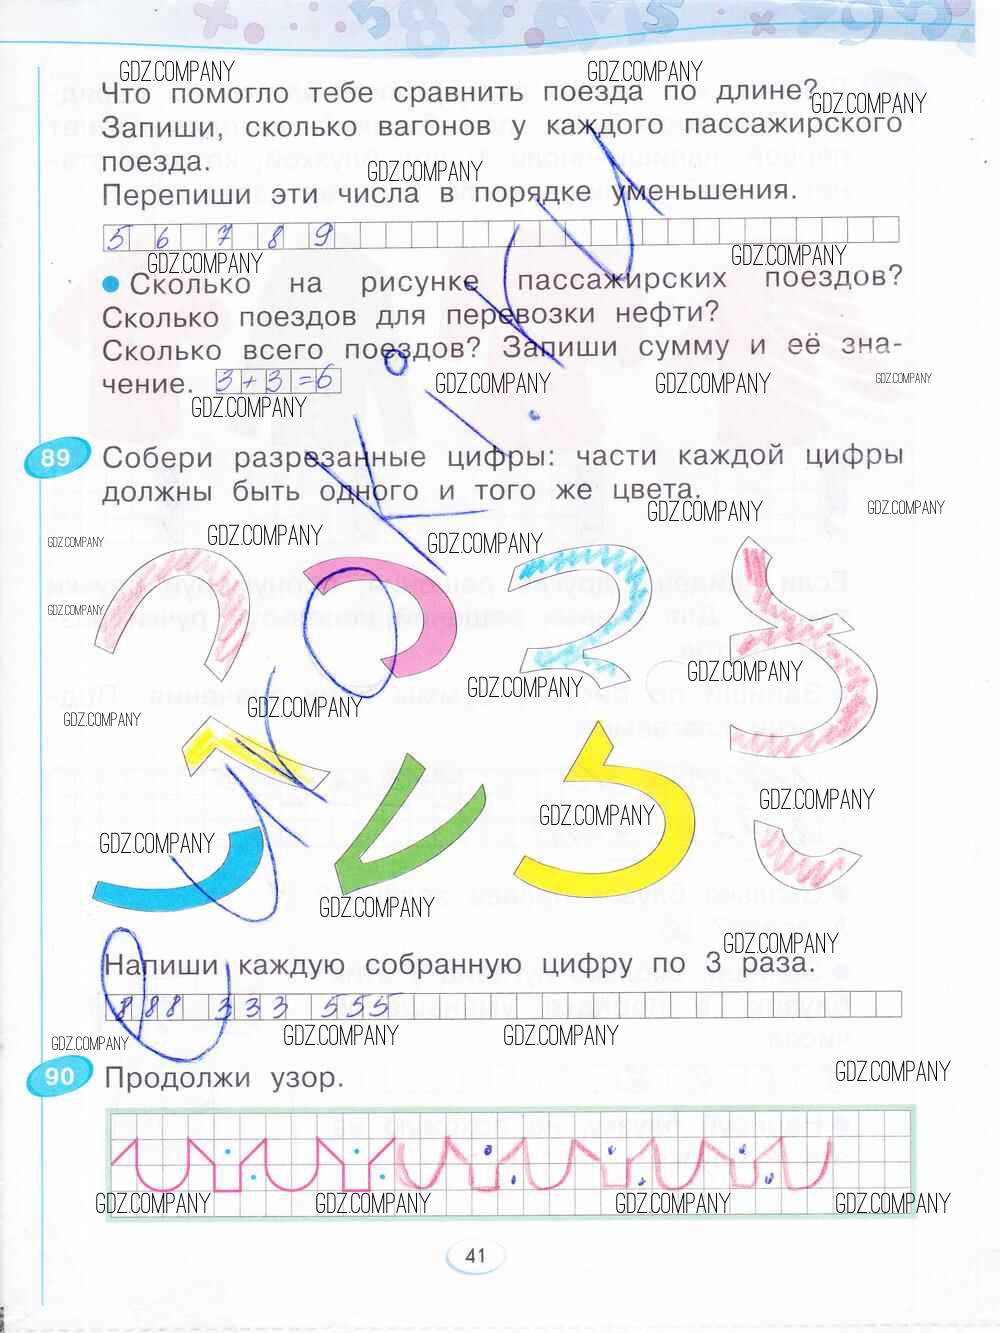 GDZ.COMPANY GDZ.COMPANY
Что помогло тебе сравнить поезда по длине?
GDZ.COMPANY
Запиши, сколько вагонов у каждого пассажирского
поезда.
GDZ.COMPANY
Перепиши эти числа в порядке уменьшения.
5 6 7 8 9
GDZ.COMPANY GDZ.COMPANY
Сколько на рисунке пассажирских поездов?
Сколько поездов для перевозки нефти?
Сколько всего поездов? Запиши сумму и её зна-
чение. 3+3=6
GDZ.COMPANY GDZ.COMPANY GDZ.COMPANY
GDZ.COMPANY
89 Собери разрезанные цифры: части каждой цифры
должны быть одного и того же цвета.
GDZ.COMPANY GDZ.COMPANY
GDZ.COMPANY GDZ.COMPANY GDZ.COMPANY
GDZ.COMPANY
GDZ.COMPANY GDZ.COMPANY
GDZ.COMPANY GDZ.COMPANY
GDZ.COMPANY GDZ.COMPANY
GDZ.COMPANY
GDZ.COMPANY
GDZ.COMPANY
Напиши каждую собранную цифру по 3 раза.
888 333 555
GDZ.COMPANY GDZ.COMPANY GDZ.COMPANY
90 Продолжи узор.
GDZ.COMPANY
GDZ.COMPANY GDZ.COMPANY GDZ.COMPANY GDZ.COMPANY
41